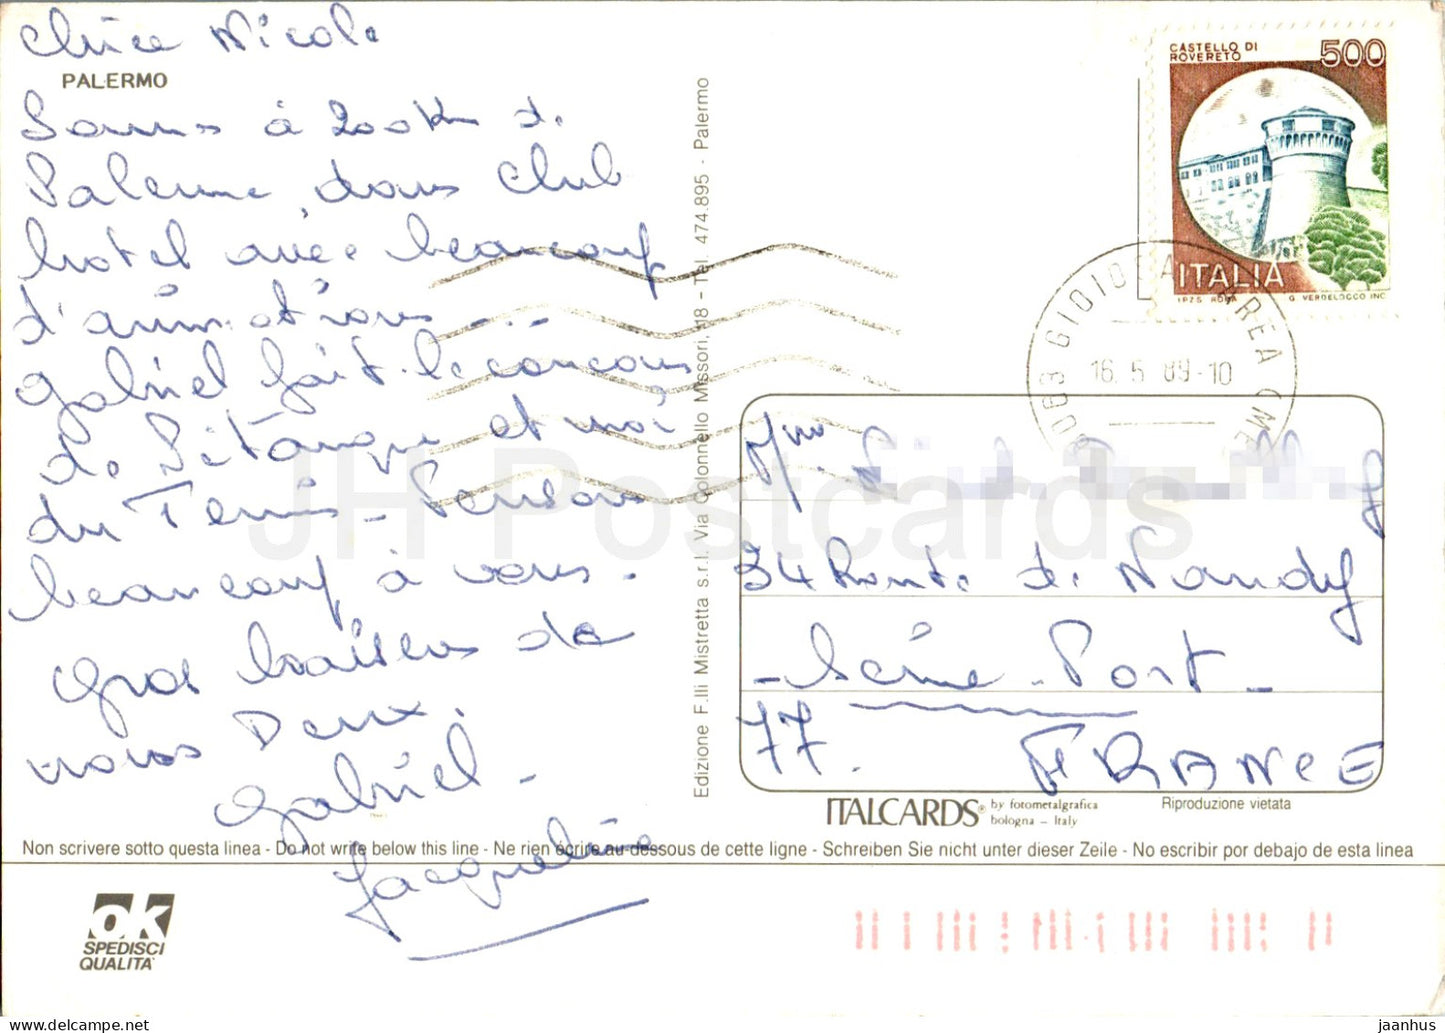 Chère Nicole
PALERMO
Sommes à 200 Km de
Palerme, dans Club
hotel avec beaucoup
d'animations - ...
Gabriel fait le concours
de Pétanque et moi
du Tennis - Pensons
beaucoup à vous -
Gros baisers de
nous Deux.
Gabriel -
Jacqueline
Edizione F.lli Mistretta s.r.l. Via Colonnello Missori, 18 - Tel. 474.895 - Palermo
CASTELLO DI
ROVERETO
500
ITALIA
I.P.Z.S. ROMA G. VERDELOCCO INC.
GIOIOSA MAREA (ME
16. 5 89-10
Mme
34 Route de Nandy
- Seine - Port -
77. FRANCE
ITALCARDS® by fotometalgrafica
bologna - Italy
Riproduzione vietata
Non scrivere sotto questa linea - Do not write below this line - Ne rien écrire au-dessous de cette ligne - Schreiben Sie nicht unter dieser Zeile - No escribir por debajo de esta linea
ok
SPEDISCI
QUALITA'
JH Postcards
https://www.delcampe.net
jaanhus